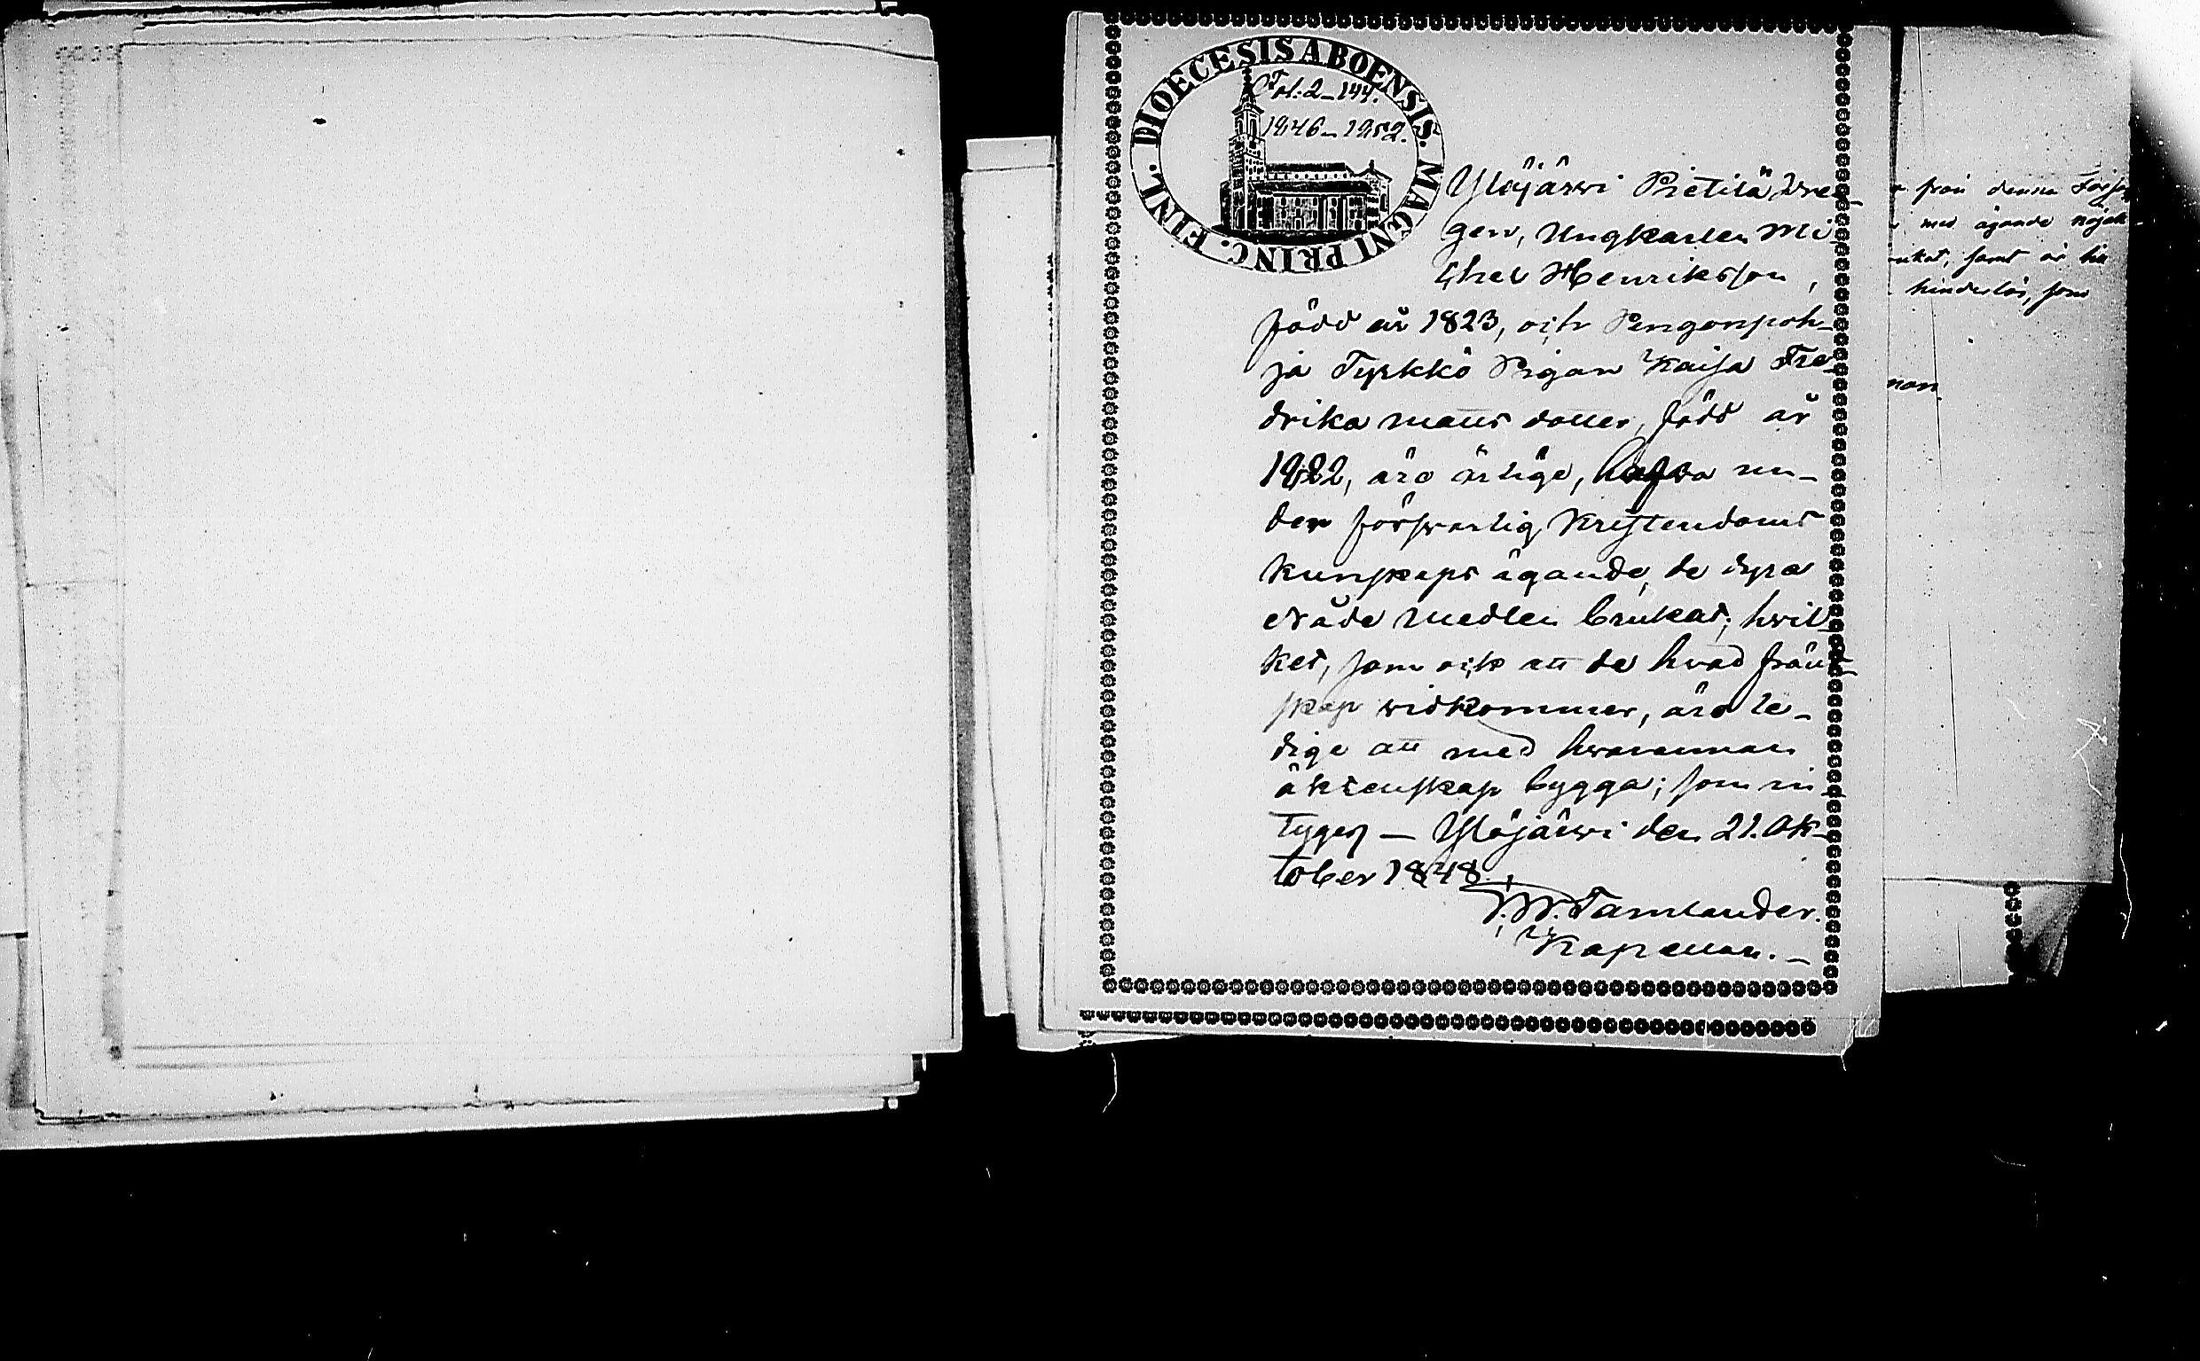 DIOECESIS ABOENSIS. MAGNI PRINC. FINL.
Fol: 2-144.
1846-1852.
Ylöjärwi Pietilä Dre-
gen, Ungkarlen Mi-
chel Henriksson,
född år 1823, och Pengonpoh-
ja Tyrkkö Pigan Kaisa Fre-
drika Matts dotter, född år
1822, äro ärlige, hafva un-
der försvarlig Kristendoms
kunskaps ägande, de dyra
Nåde medlen brukat; hwil-
ket, som ock att de hvad fränd-
skap widkommer, äro le-
dige att med hwarannan
äktenskap bygga; som in-
tygas — Ylöjärwi den 21. Ok-
tober 1848.
Tamlander.
Kapellan.
från denna
med ägande nöjak-
samt är
hinderlös, som
man.